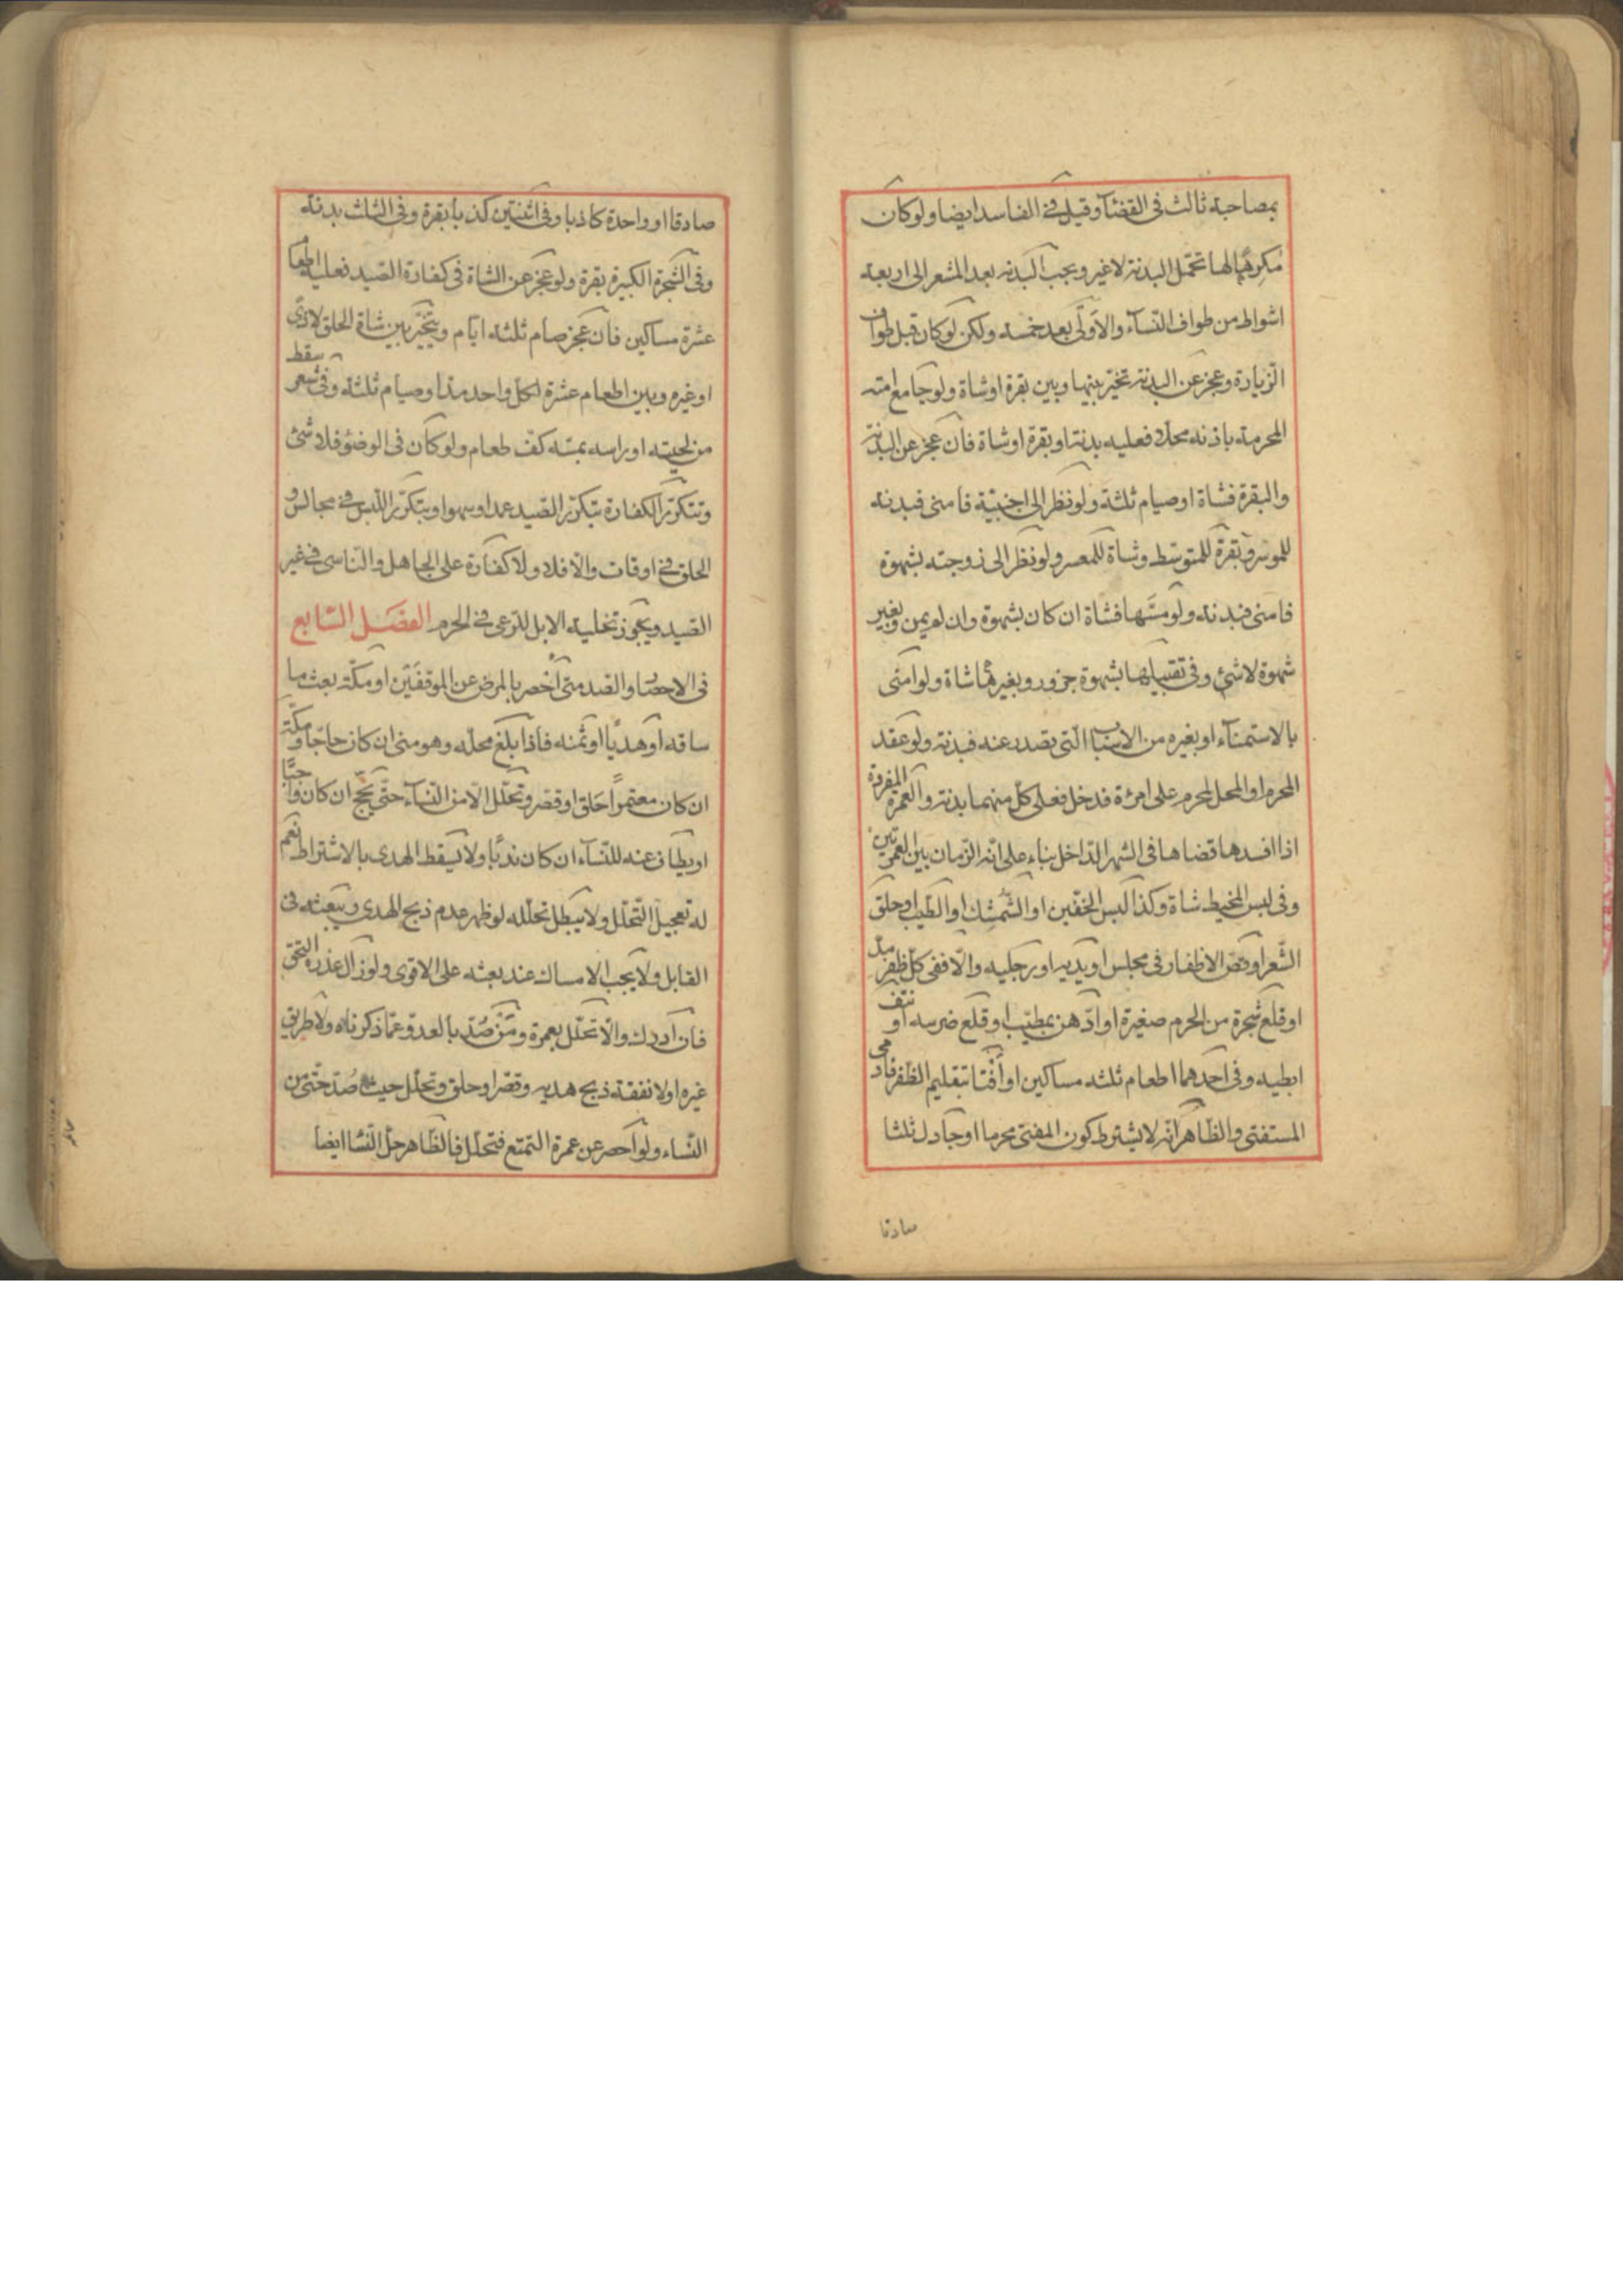 بمصاحبة ثالث فى القضآء وقيل فى الفاسد ايضا ولو كان
مكرها لها تحمّل البدنة لا غير ويجب البدنه بعد المشعر الى اربعة
اشواط من طواف النّسآء والاولى بعد خمسة ولكن لو كان قبل طواف
الزيارة وعجز عن البدنة تخيّر بينها وبين بقرة او شاة ولو جامع امته
المحرمة باذنه محلا فعليه بدنة او بقرة او شاة فان عجز عن البدنة
والبقرة فشاة او صيام ثلثة ولو نظر الى اجنبيّة فامنى فبدنة
للموسر وبقرة للمتوسّط وشاة للمعسر ولو نظر الى زوجته بشهوة
فامنى فبدنة ولو مسّها فشاة ان كان بشهوة وان لم يمن وبغير
شهوة لا شئ وفى تقبيلها بشهوة جزور وبغيرها شاة ولو امنى
بالاستمنآء او بغيره من الاسباب الّتى تصدر عنه فبدنة ولو عقد
المحرم او المحل لمحرم على امرئة فدخل فعلى كلّ منهما بدنة والعمرة المفردة
اذا افسدها قضاها فى الشهر الدّاخل بناء على انّه الزّمان بين العمرتين
وفى لبس المخيط شاة وكذا لبس الخفّين او الشّمشك او الطّيب او حلق
الشّعر او قصّ الاظفار فى مجلس او يديه او رجليه والّا ففى كلّ ظفر مدّ
او قلع شجرة من الحرم صغيرة او ادّهن بمطيّب او قلع ضرسه او نتف
ابطيه وفى احدهما اطعام ثلثه مساكين او أفتا بتقليم الظّفر فادمى
المستفتى والظّاهر انّه لا يشترط كون المفتى محرما او جادل ثلثا
صادقا
صادقا او واحدة كاذبا وفى اثنتين كذبا بقرة وفى الثلث بدنة
وفى الشّجرة الكبيرة بقرة ولو عجز عن الشاة فى كفارة الصّيد فعليه اطعام
عشرة مساكين فان عجز صام ثلثة ايّام ويتخيّر بين شاة الحلق لاذى
او غيره وبين اطعام عشرة لكلّ واحد مدّ او صيام ثلثة وفى شعر سقط
من لحيته او راسه بمسّه كفّ طعام ولو كان فى الوضؤ فلا شئ
وتتكرّر الكفارة بتكرّر الصّيد عمدا وسهوا وبتكرّر اللّبس فى مجالس و
الحلق فى اوقات والّا فلا ولا كفّارة على الجاهل والنّاسى فى غير
الصّيد ويجوز تخلية الابل للرّعى فى الحرم الفصل السّابع
فى الاحصار والصّد متى أحصر بالمرض عن الموقفين او مكّة بعث ما
ساقه او هديًا او ثمنه فاذا بلغ محلّه وهو منى ان كان حاجّا ومكّة
ان كان معتمرًا حلق او قصّر وتحلّل الا من النّسآء حتّى يحجّ ان كان واجبًا
او يطاف عنه للنّسآء ان كان ندبًا ولا يسقط الهدى بالاشتراط نعم
له تعجيل التّحلّل ولا يبطل تحلّله لو ظهر عدم ذبح الهدى ويبعثه فى
القابل ولا يجب الامساك عند بعثه على الاقوى ولو زال عذره التحق
فان ادرك والّا تحلّل بعمرة ومن صُدّ بالعدوّ عمّا ذكرناه ولا طريق
غيره او لا نفقة ذبح هديه وقصّر او حلق وتحلّل حيث صُدّ حتّى من
النّساء ولو احصر عن عمرة التمتّع فتحلّل فالظّاهر حلّ النّسا ايضا